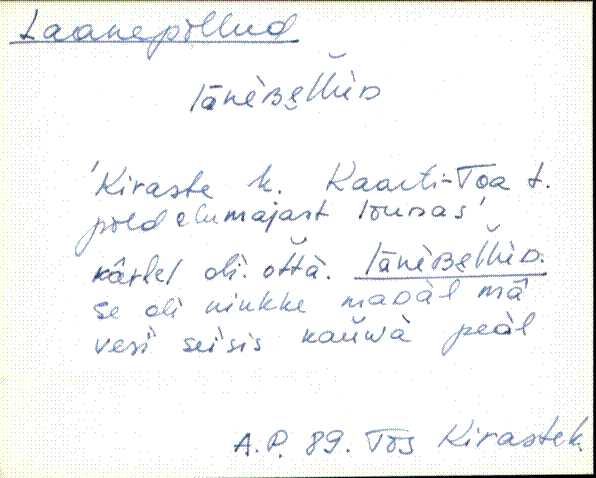 Laanepõllud
lānèʙęl̆l̆ùᴅ
'Kiraste k. Kaarti-Toa t.
põld elumajast lõunas'
kârtel oli ot̆t̆à. lānèʙęl̆l̆ùᴅ.
se oli niukke maᴅàl mâ
vesi seisis kaŭwà peàl
A.P. 89. Tõs Kiraste k.